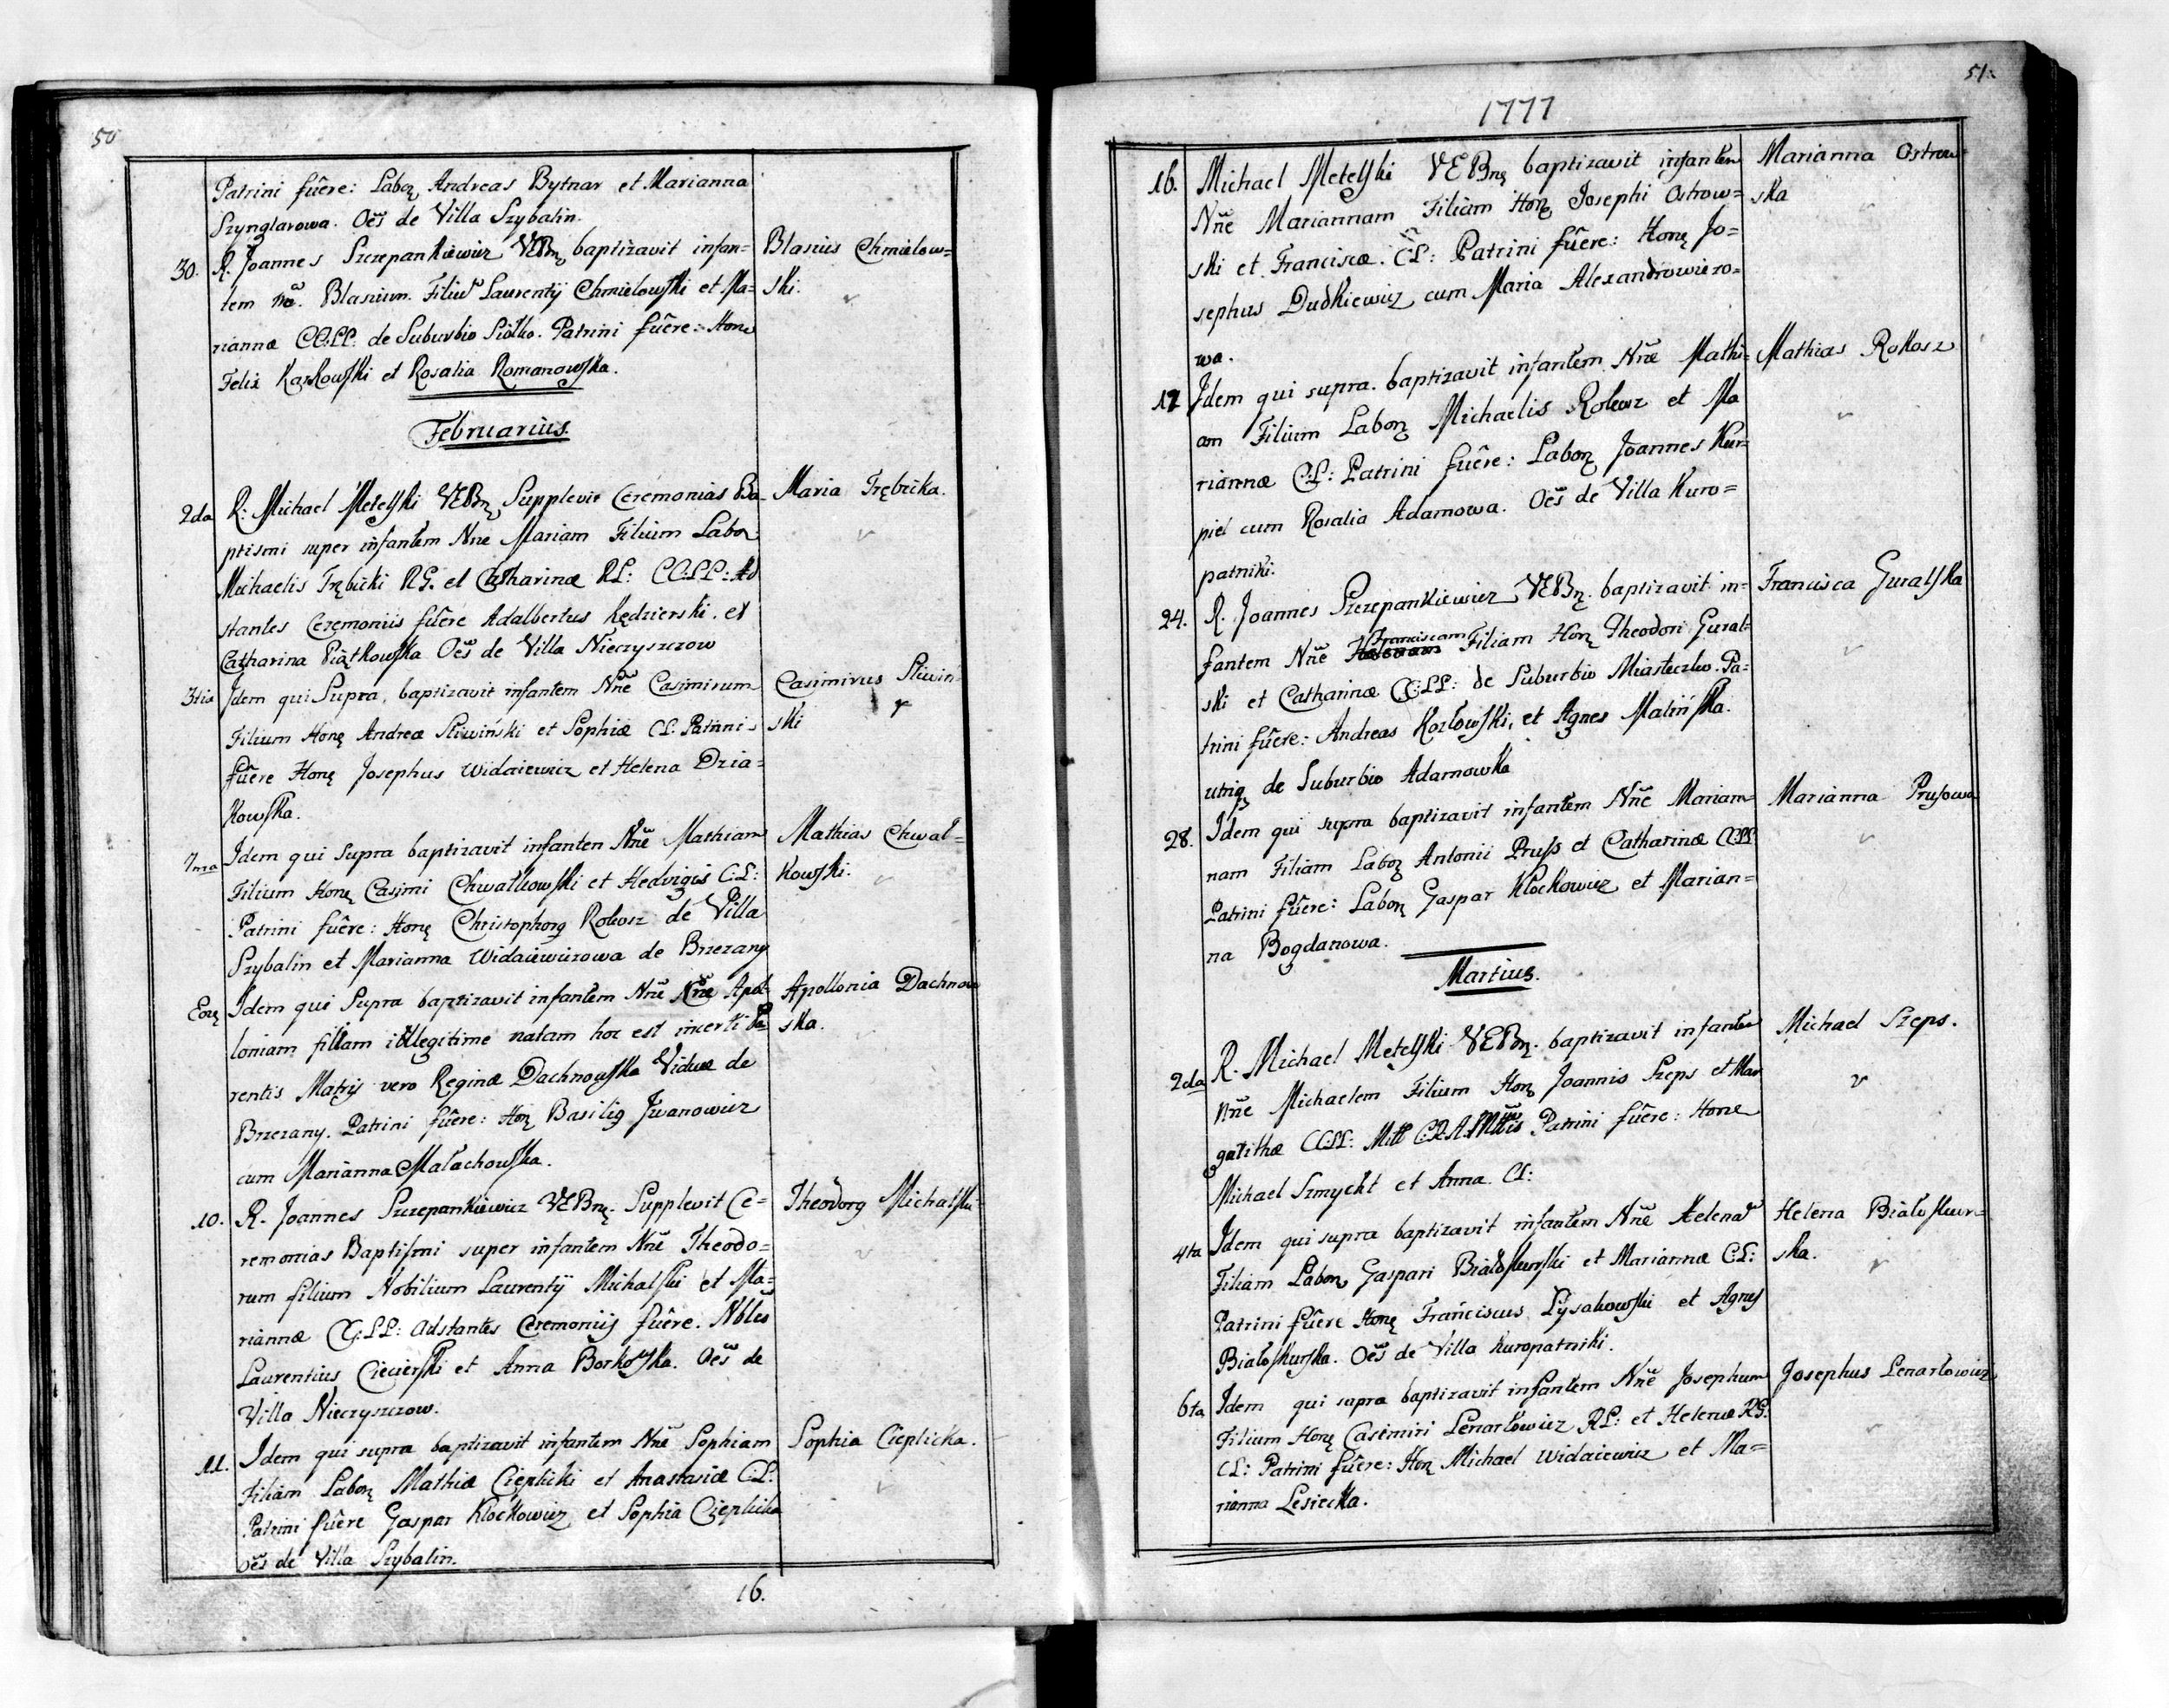 50
Patrini fuêre: Laboꝝ Andreas Bytnar et Marianna
Szynglarowa. Oẽs de Villa Szybalin.
30. R. Joannes Szczepankiewicz VEBnꝫ baptizavit infan=
tem nẽ. Blasium. Filiũ Laurentÿ Chmielowski et Ma=
riannæ CC:LL: de Suburbio Siołko. Patrini fuêre: Hone
Felix Karkowski et Rosalia Romanowska.
Blasius Chmielow=
ski.
Februarius.
2da R: Michael Metelski VEBnꝫ Supplevit Ceremonias Ba-
ptismi super infantem Nne Mariam Filiam Laboꝝ
Michaelis Trębicki RG. et Catharinæ RL: CC:LL: Ad
stantes Ceremoniis fuêre Adalbertus Kędzierski. et
Catharina Piątkowska Oẽs de Villa Nieczyszczow
Maria Trębicka.
3tia Idem qui Supra, baptizavit infantem Nñe Casimirum
Filium Honꝝ Andreæ Sliwiński et Sophiæ CL: Patrini
fuêre Honꝝ Josephus Widaiewicz et Helena Dzia=
kowska.
Casimirus Sliwin
ski
7ma Idem qui Supra baptizavit infantem Nñe Mathiam
Filium Honꝝ Casimi Chwałkowski et Hedvigis C:L:
Patrini fuêre: Honꝝ Christophorꝰ Rokosz de Villa
Szybalin et Marianna Widaiewiczowa de Brzezany
Mathias Chwał=
kowski.
Eoꝝ Idem qui Supra baptizavit infantem Nñe Nñe Apol
loniam filiam illegitime natam hoc est incerti Pa
rentis Matris vero Reginæ Dachnowska Viduæ de
Brzezany. Patrini fuêre: Hoꝝ Basiliꝰ Iwanowicz
cum Marianna Małachowska.
Apollonia Dachnow
ska.
10. R. Joannes Szczepankiewicz VEBnꝫ. Supplevit Ce=
remonias Baptismi super infantem Nñe Theodo=
rum filium Nobilium Laurentÿ Michalski et Ma=
riannæ CC:LL: adstantes Ceremoniis fuêre. Nbles
Laurentius Ciecierski et Anna Borkowska. Oẽs de
Villa Nieczyszczow.
Theodorꝰ Michalski
11. Idem qui supra baptizavit infantem Nñe Sophiam
Filiam Laboꝝ Mathiæ Cieplicki et Anastasiæ C:L:
Patrini fuêre Gaspar Kłoćkowicz et Sophia Cieplicka
oẽs de Villa Szybalin.
Sophia Cieplicka.
16.
51.
1777
16. Michael Metelski VEBnꝫ baptizavit infantem
Nñe Mariannam Filiam Honꝝ Josephi Ostrow=
ski et Franciscæ. CL: Patrini fuêre: Honꝝ Jo=
sephus Dudkiewicz cum Maria Alexandrowiczo=
wa.
Marianna Ostrow
ska
17 Idem qui supra. baptizavit infantem Nñe Mathi=
am Filium Laboꝝ Michaelis Rokosz et Ma
riannæ CL: Patrini fuêre: Laboꝝ Joannes Kur=
piel cum Rosalia Adamowa. Oẽs de Villa Kuro=
patniki.
Mathias Rokosz
24. R. Joannes Szczepankiewicz VEBnꝫ. baptizavit in=
fantem Nñe Helenam Franciscam Filiam Honꝝ Theodori Gural=
ski et Catharinæ CC:LL: de Suburbio Miasteczko. Pa=
trini fuêre: Andreas Kozłowski, et Agnes Malińska.
utriqꝫ de Suburbio Adamowka
Francisca Guralska
28. Idem qui supra baptizavit infantem Nñe Marian
nam Filiam Laboꝝ Antonii Pruss et Catharinæ CC:LL
Patrini fuêre: Laboꝝ Gaspar Kłockowicz et Marian=
na Bogdanowa.
Marianna Prusowa
Martius.
2da R. Michael Metelski VEBnꝫ. baptizavit infantem
Nñe Michaelem Filium Honꝝ Joannis Szeps et Mar
garithæ CC:LL: Patrini fuêre: Hone
Michael Szmycht et Anna. CL:
Michael Szeps.
4ta Idem qui supra baptizavit infantem Nñe Helenã
Filiam Laboꝝ Gaspari Białoskurski et Mariannæ C:L:
Patrini fuêre Honꝝ Franciscus Łysakowski et Agnes
Białoskurska. Oẽs de Villa Kuropatniki.
Helena Białoskur=
ska.
6ta Idem qui supra baptizavit infantem Nñe Josephum
Filium Honꝝ Casimiri Lenartowicz RL: et Helenæ RG:
CL: Patrini fuêre: Honꝝ Michael Widaiewicz et Ma=
rianna Lesiecka.
Josephus Lenartowicz